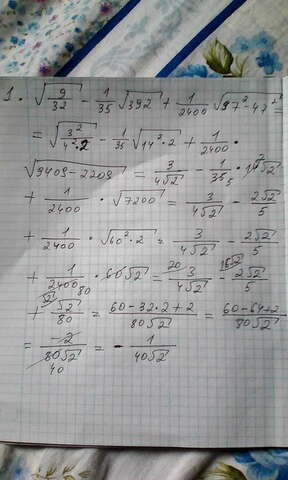 1. √(9/32) − 1/35 √392 + 1/2400 √(97² − 47²) =
= √(3²/(4²·2)) − 1/35 √(14²·2) + 1/2400 ·
√(9409 − 2209) = 3/(4√2) − 1/35 · 14√2
+ 1/2400 · √7200 = 3/(4√2) − 2√2/5
+ 1/2400 · √(60²·2) = 3/(4√2) − 2√2/5
+ 1/2400 · 60√2 = 3/(4√2) − 2√2/5
+ √2/80 = (60 − 32·2 + 2)/(80√2) = (60 − 64 + 2)/(80√2)
= −2/(80√2) = − 1/(40√2)